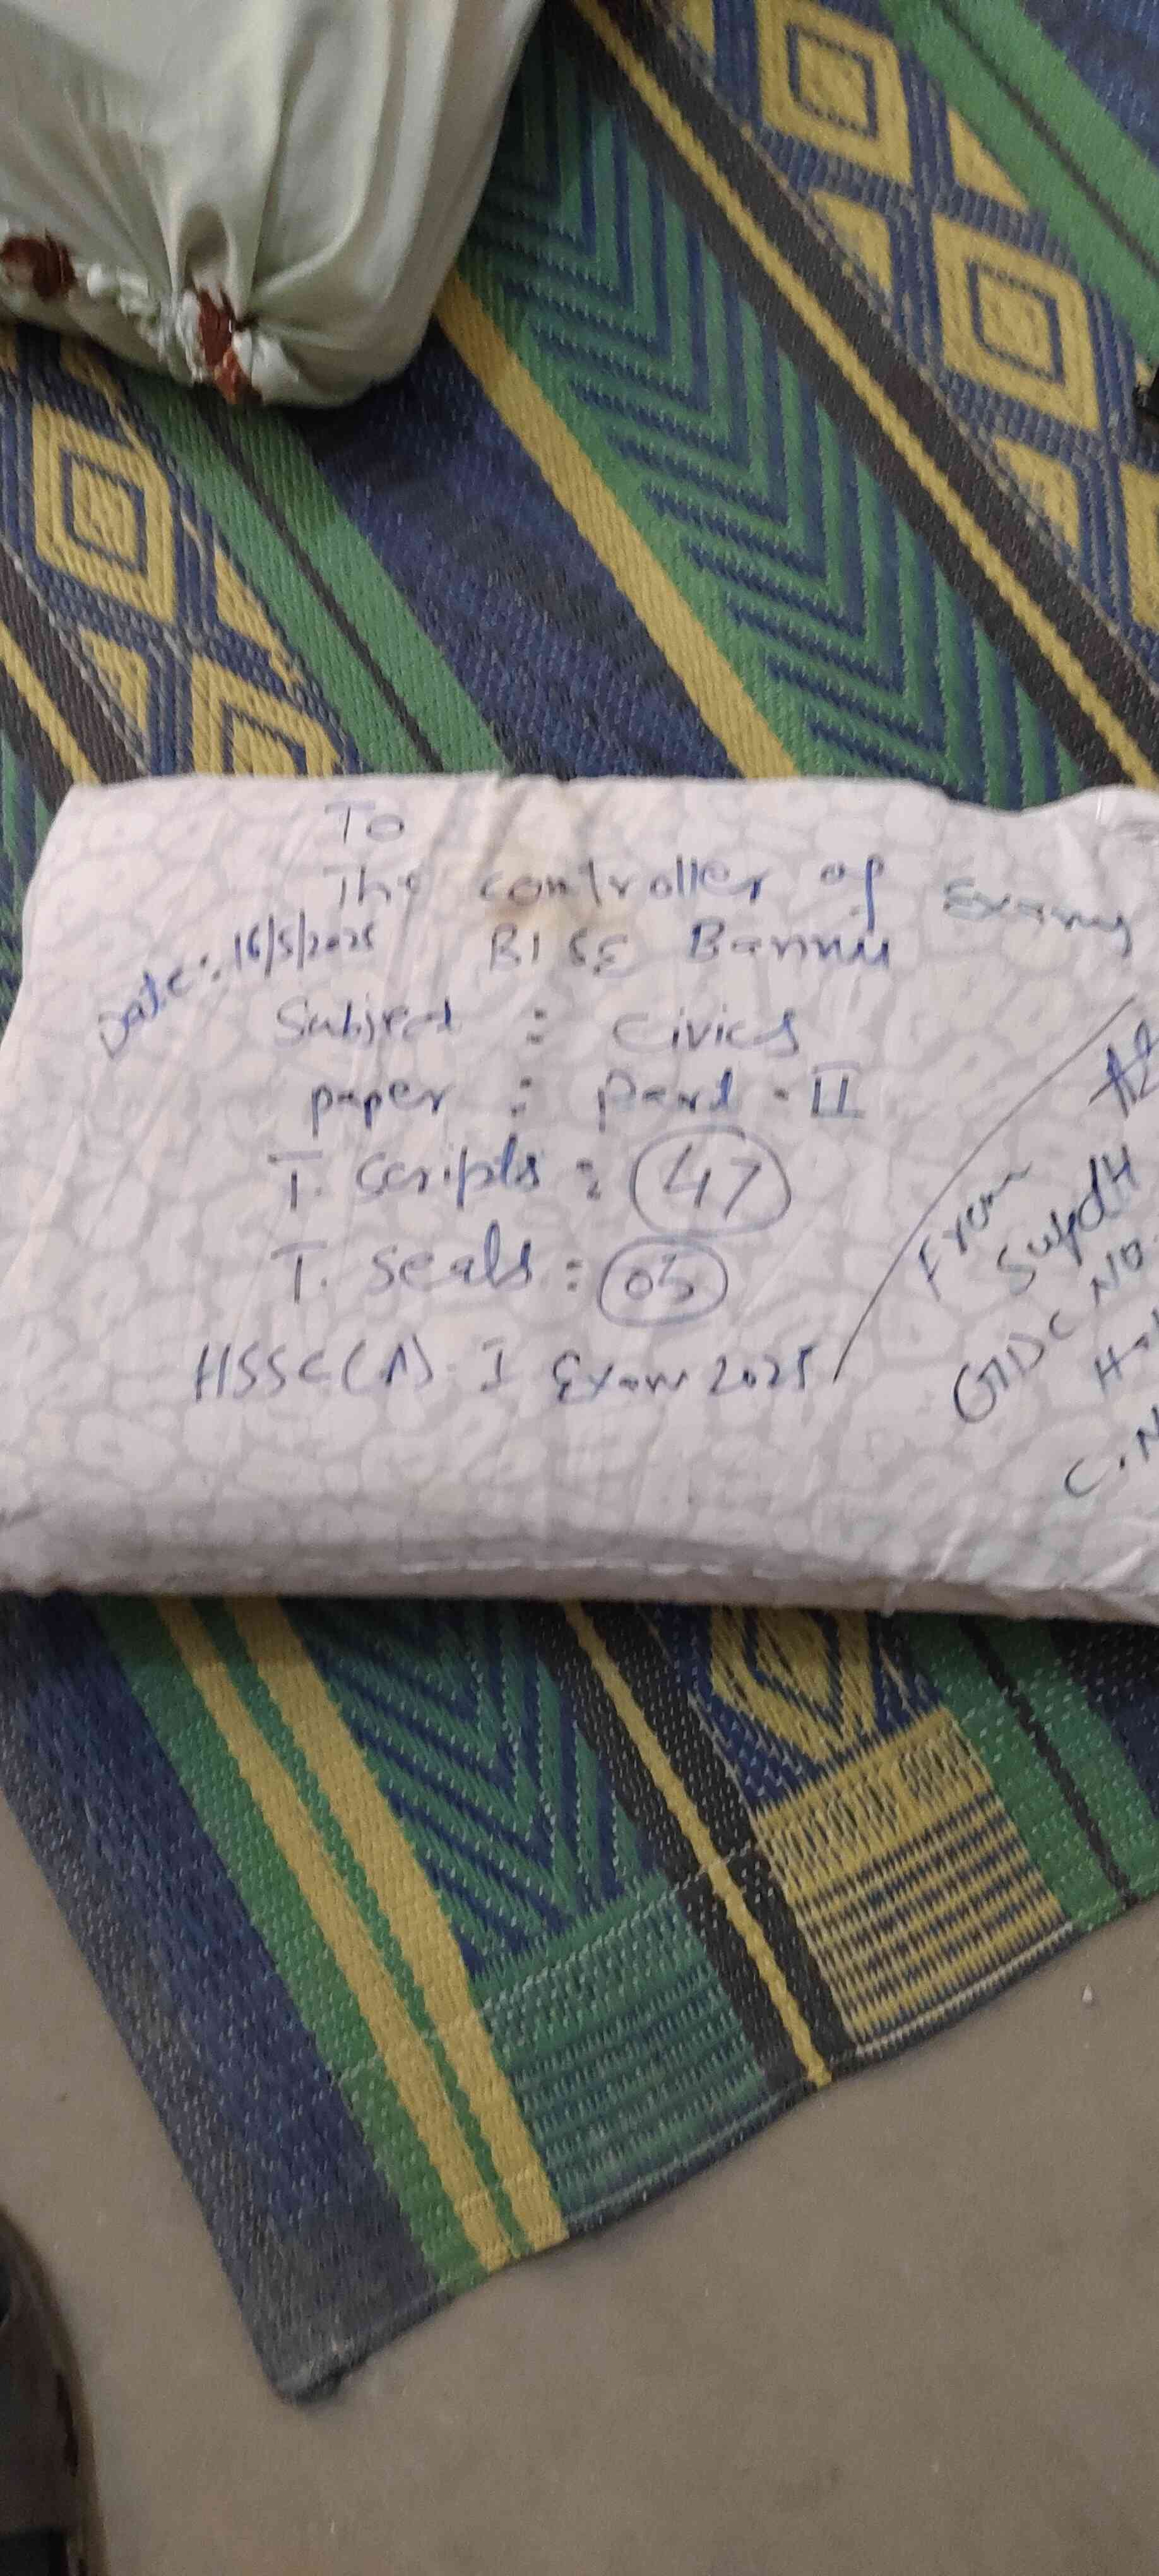 To
The controller of Exams
Date: 16/5/2025 BISE Bannu
Subject : Civics
paper : Part - II
T. Scripts : 47
T. Seals : 05
HSSC(A)-I Exam 2025
From
Supdtt
GDC NO.
C.N